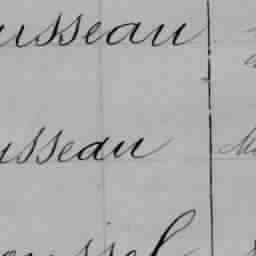 usseau
usseau
oussel